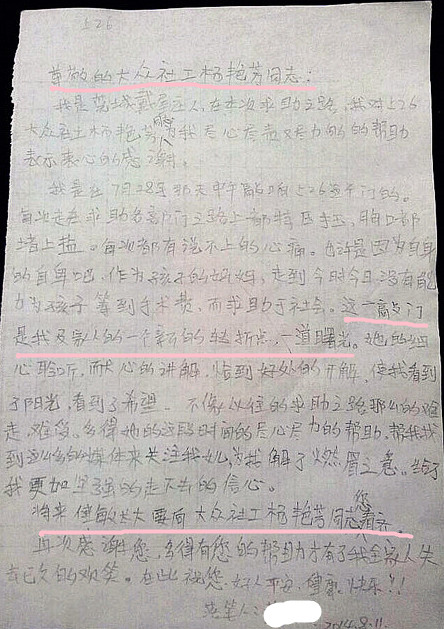 526
尊敬的大众社工杨艳芳同志:
我是 人,在这次求助之路,我对526
大众社工杨艳芳 为我尽心尽责又尽力的的帮助
表示衷心的感谢。
我是在7月28号那天中午敲响526这个门的。
每次走在求助各部门之路上都特 , 口都
堵着上 。每次都有说不上的心痛。也许是因为自身
的自卑吧,作为孩子的妈妈,走到今时今日没有能
力为孩子筹到手术费,而求助于社会。这一敲门
是我及家人的一个新的转折点,一道曙光。她的细
心聆听,耐心的讲解,恰到好处的开解,使我看到
了阳光,看到了希望。不像以往的求助之路那么的难
走,难受。多得她的这段时间的尽心尽力的帮助,帮我找
到这么多的媒体来关注我儿,为我解了燃眉之急。给了
我更加坚强的走下去的信心。
将来 敏长大要向大众社工杨艳芳同志您看齐。
再次感谢您,多得有您的帮助才有了我全家人失
去已久的欢笑。在此祝您:好人平安,健康。快乐!!
 笔人:
2014.8.11.